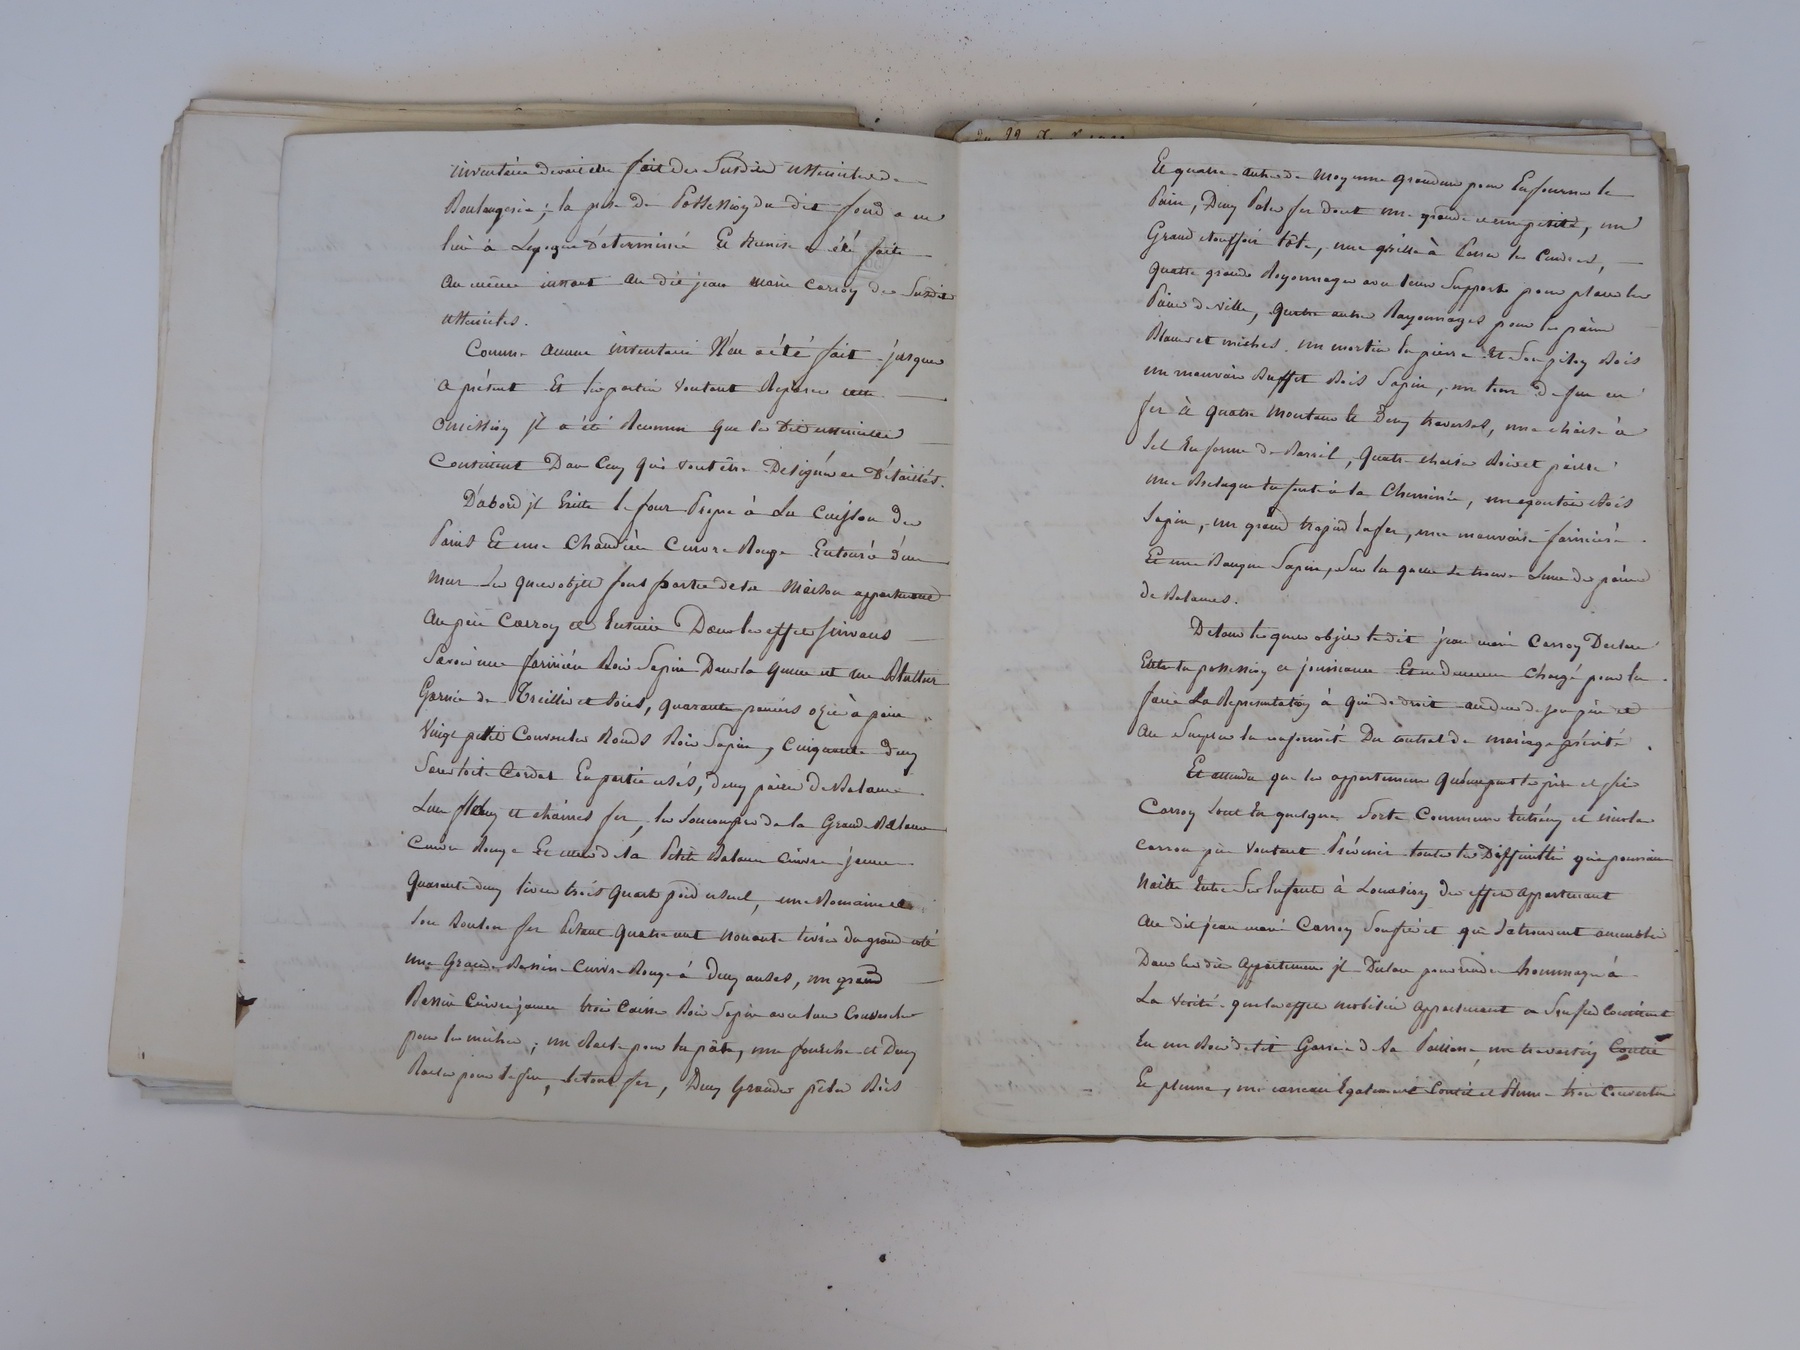 inventaire devait être fait des susdits ustensiles de
Boulangerie ; la prise de Possession du dit fond a eu
lieu à l'epoque déterminée Et Remise a été faite
au même instant au dit jean marie Carroy des susdits
ustensiles.
Comme aucun inventaire N'en a été fait jusques
a présent Et les parties voulant Réparer cette
omission il a été Reconnu que les Dits ustensiles
Consistent Dans Ceux qui vont être Designés et Détaillés.
D'abord il Existe le four Propre à La Cuisson des
Pains Et une Chaudière Cuivre Rouge Entouré d'un
mur les queux objets font partie de la Maison appartenant
Au père Carroy et Ensuite Dans les effets suivans
Savoir une farinière Bois Sapin Dans la quelle est une Bluttur
Garnie de treillis et soies, quarante paniers ozié à pain
Vingt petits Couvercles Ronds Bois Sapin, Cinquante deux
Cordes En partie usés, deux paires de Balance
L'un fléau et chaines fer, les soucoupes de la Grande Balance
Cuivre Rouge Et celles de la Petite Balance Cuivre jaune
quarante deux livres trois quart poid usuel, une Romaine et
son Boulon fer Pesant quatre cent nonante livres du grand coté
une Grande Bassine Cuivre Rouge à deux anses, un grand
Bassin Cuivre jaune trois Caisses Bois Sapin avec leur Couvercle
pour les miches ; un Racle pour la pâte, une fourche et Deux
Racles pour le feu, le tout fer, Deux Grandes pêles Bois
Et quatre autres de moyenne grandeur pour Enfourner le
Pain, Deux Pales fer dont une grande et une petite, un
Grand etouffoir tôle, une grille à Passer les Cendres,
quatre grands Rayonnages avec leurs Supports pour placer les
Pains de ville, quatre autres Rayonnages pour les pains
Blancs et miches. un mortier En pierre Et son pilon Bois
un mauvais Buffet Bois Sapin, un tour de feu en
fer à quatre montans et Deux traverses, une chaise à
Sel En forme de Barril, quatre chaises Bois et paille
une Bretagne En fonte à la Cheminée, un egoutoir Bois
Sapin, un grand trapied En fer, une mauvaise farinière
Et une Banque Sapin, Sur la quelle se trouve L'une des paires
de Balances.
De tous les queux objets le dit jean marie Carroy Declare
Etre En possession et jouissance Et en demeure Chargé pour En
faire La Représentation à qui de droit au deces de son père et
au Surplus En conformité Du contrat de mariage précité.
Et attendu que les appartemens qu'occupent le père et fils
Carroy sont En quelque sorte Communs Entr'eux et que le
Carroy père voulant Prévenir toutes les Difficultés qui pourraient
Naître Entre Ses Enfants à L'occasion des effets appartenant
au dit jean marie Carroy Son fils et qui se trouvent
Dans les dits appartemens il Déclare pour rendre hommage à
La Verité que les effets mobiliers appartenant a Son fils Consistent
En un Bois de lit Garnie de Sa Paillasse, un traversin Coutil
Et plume, un coussin Egalement Coutil et Plume trois Couvertes